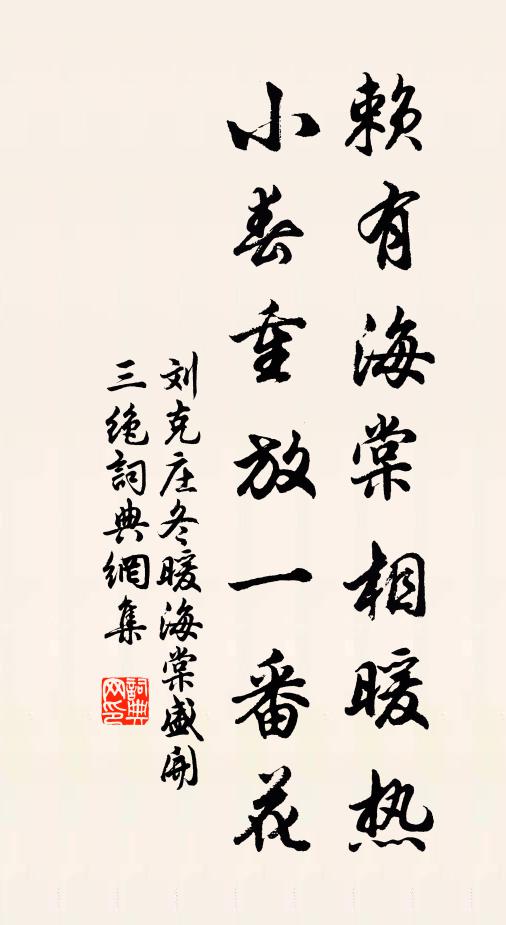 赖有海棠相暖热
小春重放一番花
刘克庄冬暖海棠盛开
三绝詞典網集
詞典网印